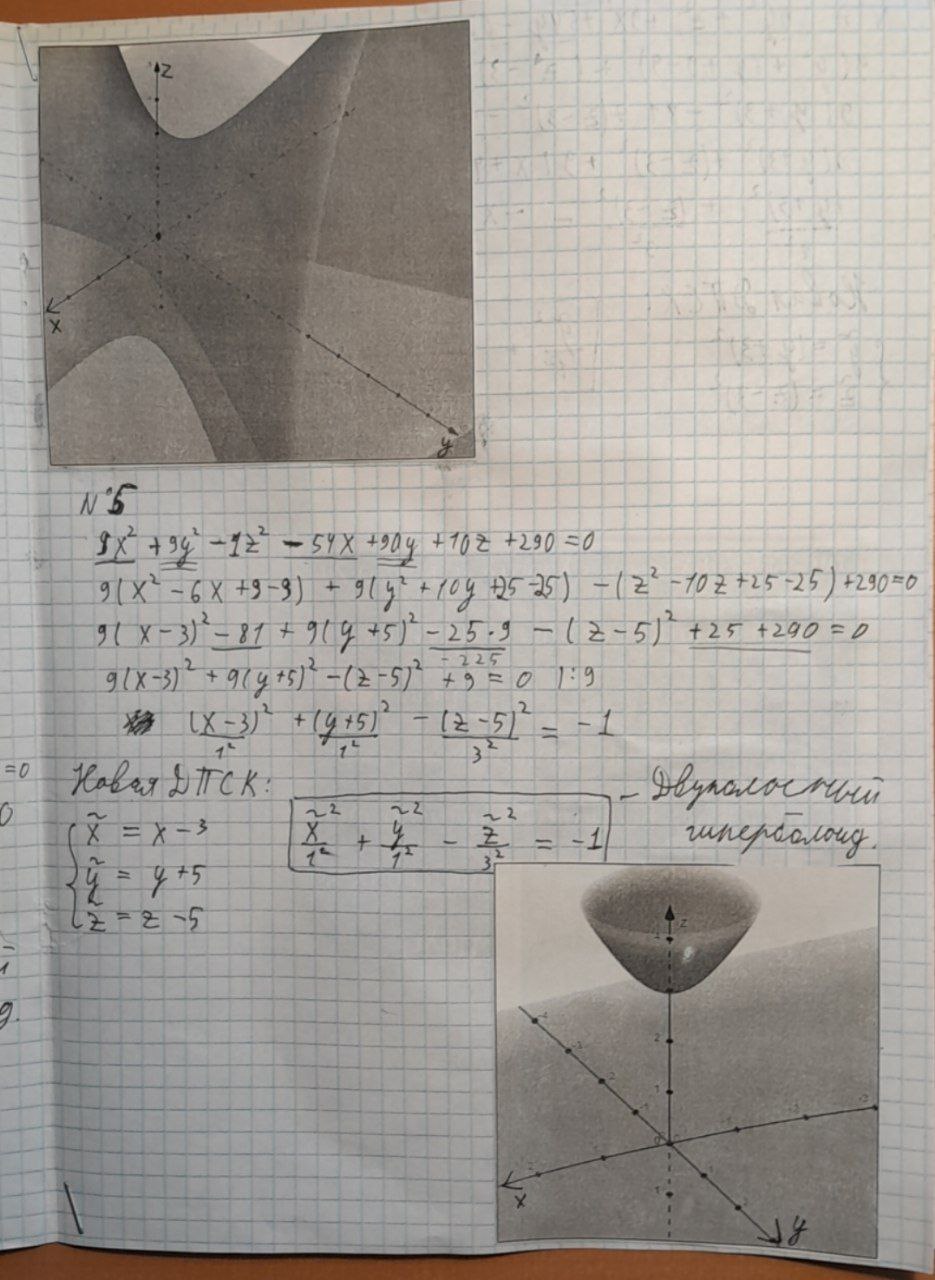 z
x
y
N°5
9x² + 9y² - 1z² - 54x + 90y + 10z + 290 = 0
9(x² - 6x + 9 - 9) + 9(y² + 10y + 25 - 25) - (z² - 10z + 25 - 25) + 290 = 0
9(x - 3)² - 81 + 9(y + 5)² - 25·9 - (z - 5)² + 25 + 290 = 0
- 225
9(x - 3)² + 9(y + 5)² - (z - 5)² + 9 = 0 | : 9
(x - 3)²/1² + (y + 5)²/1² - (z - 5)²/3² = -1
=0
Новая ДПСК:
x̃ = x - 3
ỹ = y + 5
z̃ = z - 5
x̃²/1² + ỹ²/1² - z̃²/3² = -1
- Двуполостный
гиперболоид.
z
2
1
0
x
y